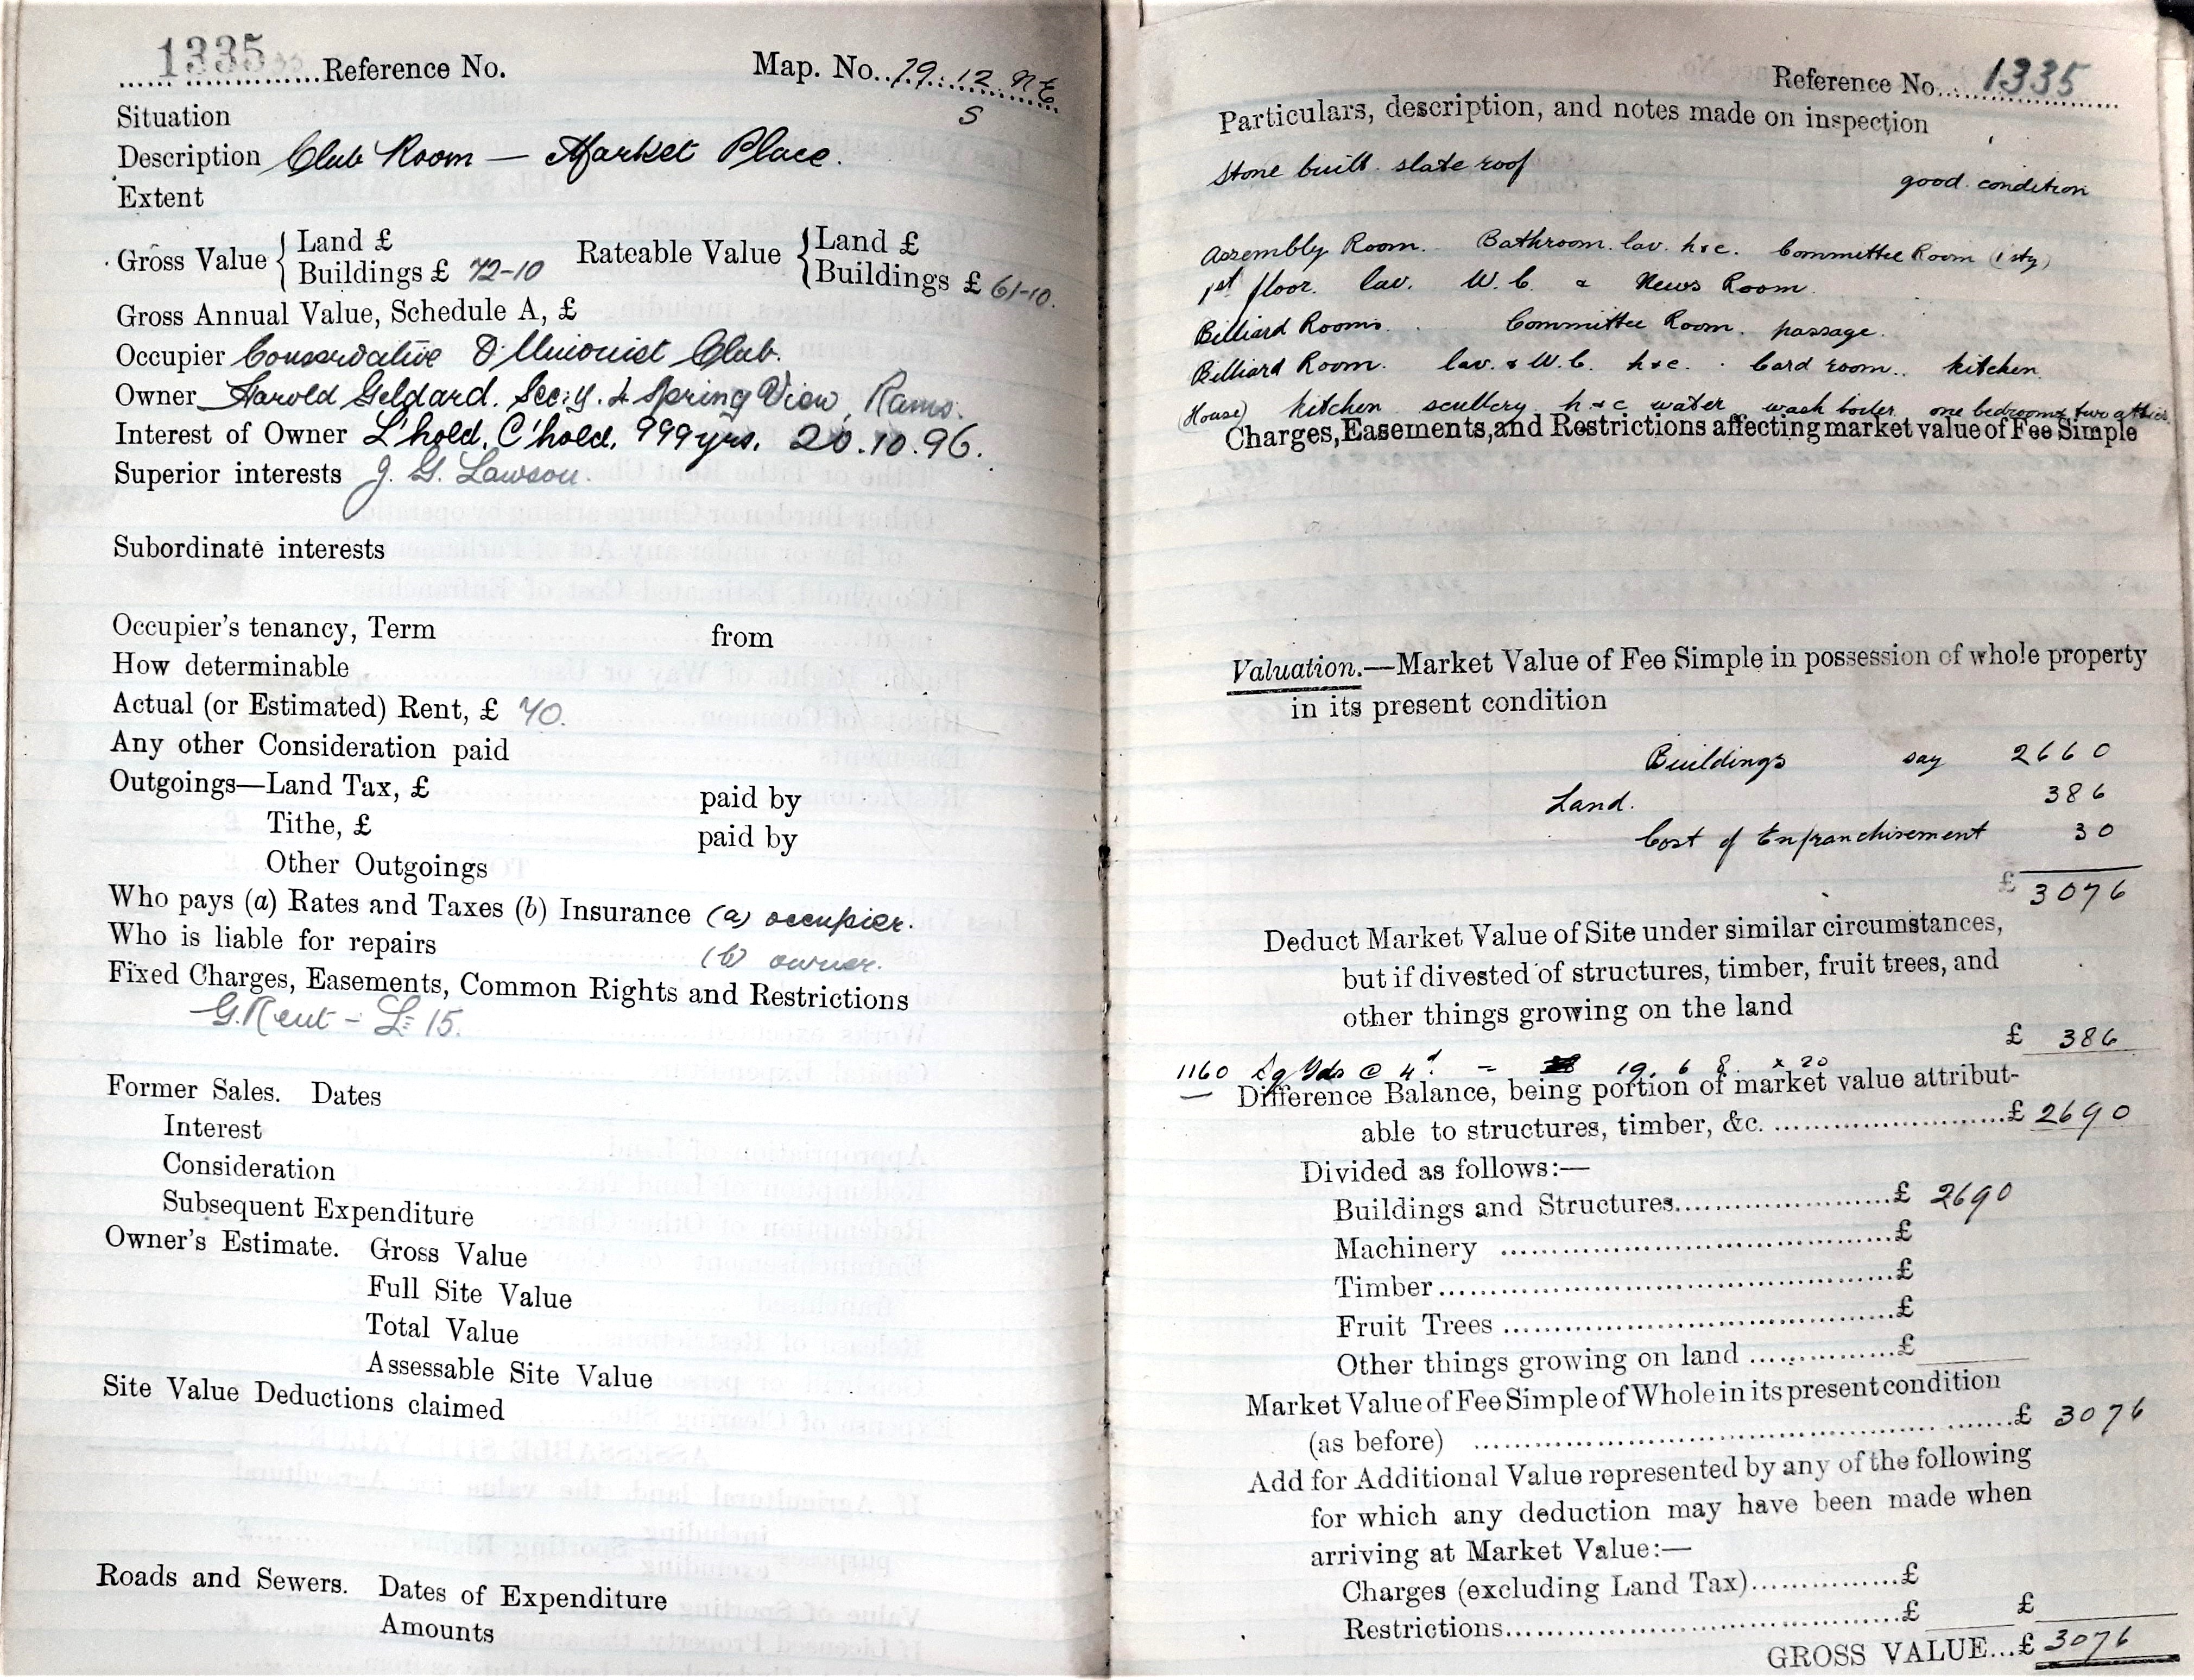 1335 Reference No. Map. No. 79.12 NE
S
Situation
Description Club Room — Market Place.
Extent
Gross Value { Land £ Rateable Value { Land £
Buildings £ 72-10 Buildings £ 61-10.
Gross Annual Value, Schedule A, £
Occupier Conservative & Unionist Club.
Owner Harold Geldard. Sec:y. 2 Spring View, Rams.
Interest of Owner L'hold, C'hold, 999 yrs, 20.10.96.
Superior interests J. G. Lawson.
Subordinate interests
Occupier's tenancy, Term from
How determinable
Actual (or Estimated) Rent, £ 70.
Any other Consideration paid
Outgoings—Land Tax, £ paid by
Tithe, £ paid by
Other Outgoings
Who pays (a) Rates and Taxes (b) Insurance (a) occupier.
Who is liable for repairs (b) owner.
Fixed Charges, Easements, Common Rights and Restrictions
G. Rent - £15.
Former Sales. Dates
Interest
Consideration
Subsequent Expenditure
Owner's Estimate. Gross Value
Full Site Value
Total Value
Assessable Site Value
Site Value Deductions claimed
Roads and Sewers. Dates of Expenditure
Amounts
Reference No. 1335
Particulars, description, and notes made on inspection
Stone built. slate roof good condition
Assembly Room. Bathroom. lav. h & c. Committee Room (1 sty)
1st floor. lav. W.C. & News Room.
Billiard Rooms. Committee Room. passage.
Billiard Room. lav. & W.C. h & c. Card room. kitchen
(House) kitchen scullery h & c water wash boiler one bedroom & two attics
Charges, Easements, and Restrictions affecting market value of Fee Simple
Valuation.—Market Value of Fee Simple in possession of whole property
in its present condition
Buildings say 2660
Land. 386
Cost of Enfranchisement 30
£ 3076
Deduct Market Value of Site under similar circumstances,
but if divested of structures, timber, fruit trees, and
other things growing on the land
£ 386
1160 Sq Yds @ 4d = 19. 6 8. x 20
Difference Balance, being portion of market value attribut-
able to structures, timber, &c. £ 2690
Divided as follows:—
Buildings and Structures £ 2690
Machinery £
Timber £
Fruit Trees £
Other things growing on land £
Market Value of Fee Simple of Whole in its present condition
(as before) £ 3076
Add for Additional Value represented by any of the following
for which any deduction may have been made when
arriving at Market Value:—
Charges (excluding Land Tax) £
Restrictions £ £
GROSS VALUE...£ 3076